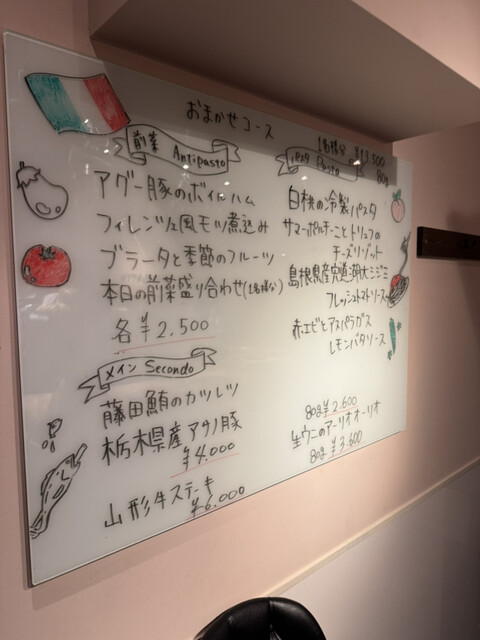 おまかせコース
1名様分 ¥13,500
前菜 Antipasto
アグー豚のボイルハム
フィレンツェ風モツ煮込み
ブラータと季節のフルーツ
本日の前菜盛り合わせ(1名様分)
各¥2.500
メイン Secondo
藤田鮪のカツレツ
栃木県産アサノ豚
¥4.000
山形牛ステーキ
¥6.000
Pasta
80g
白桃の冷製パスタ
サマーポルチーニとトリュフの
チーズリゾット
島根県産宍道湖大シジミ
フレッシュトマトソース
赤エビとアスパラガス
レモンバタソース
80g ¥2.600
生ウニのアーリオオーリオ
80g ¥3.600